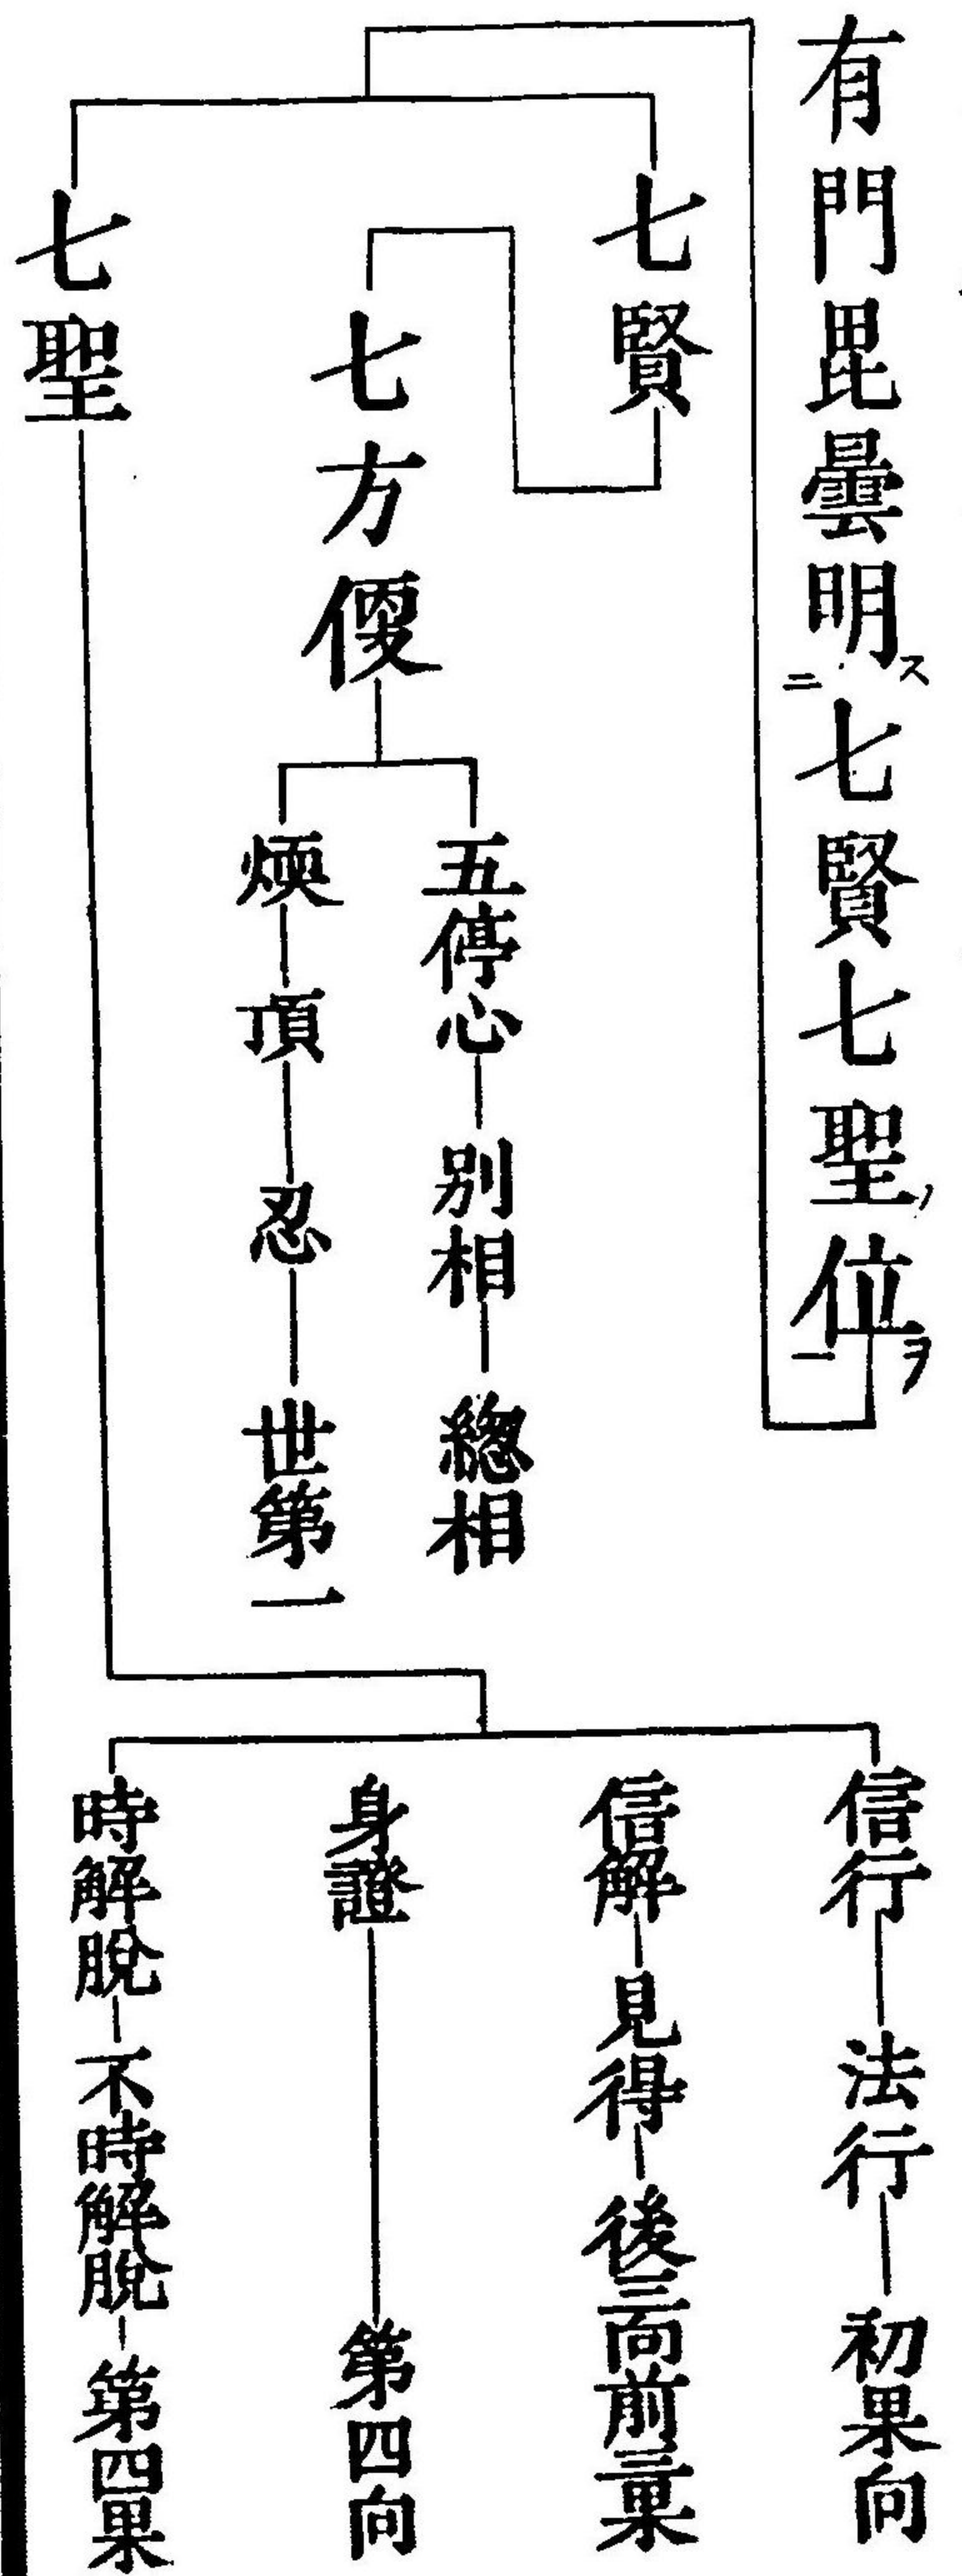 有門毘曇明ス二七賢七聖ノ位ヲ一
七賢
七方便
五停心 別相 總相
煗 頂 忍 世第一
七聖
信行 法行 初果向
信解 見得 後三向前三果
身證 第四向
時解脫 不時解脫 第四果